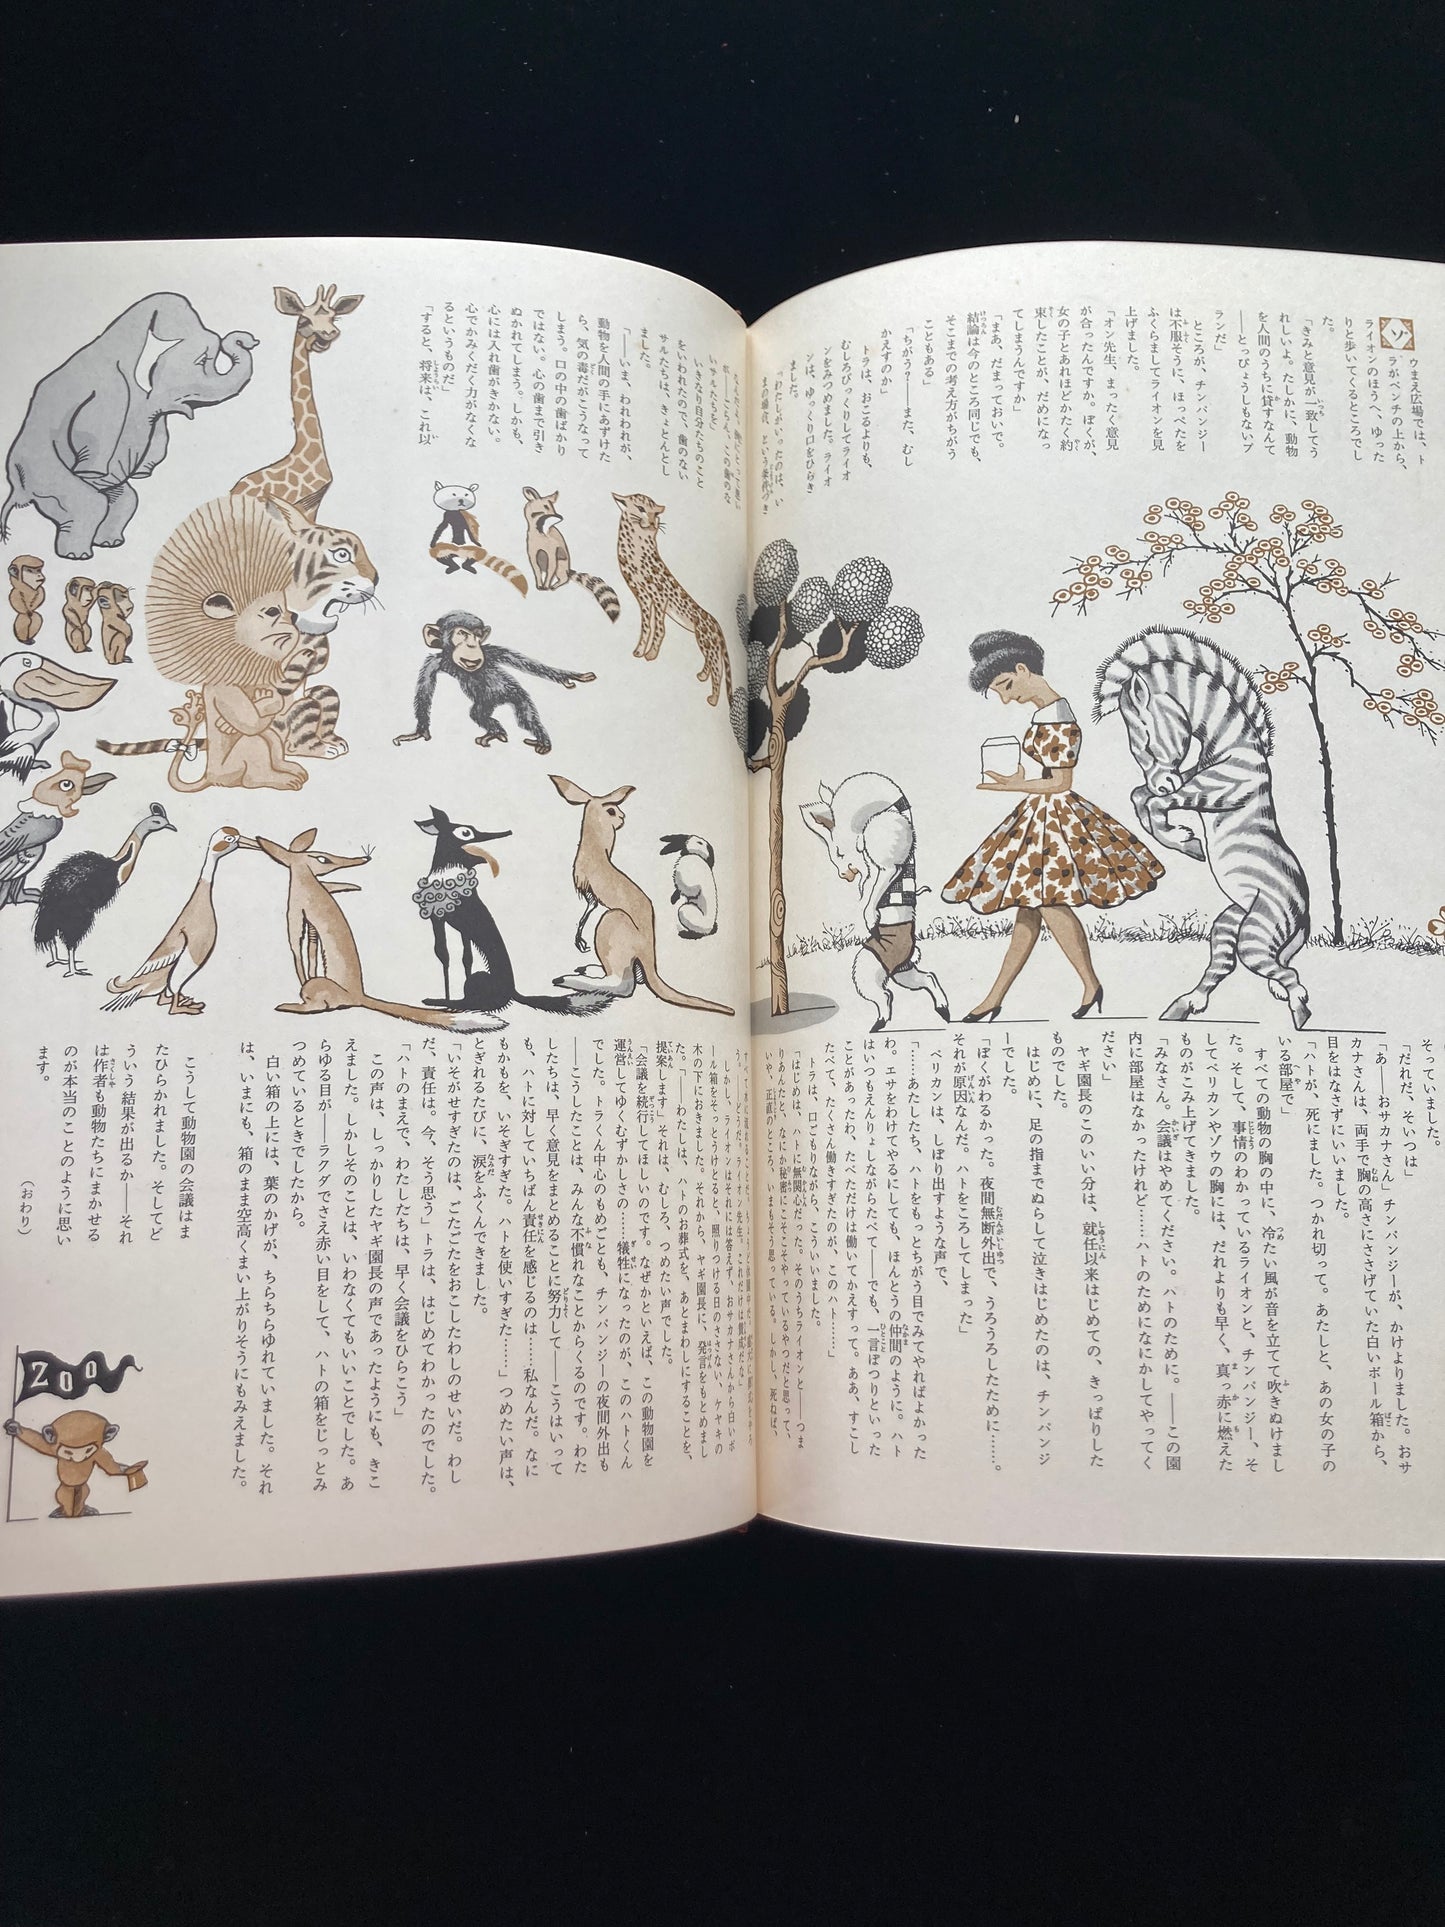 ゾ
ウまえ広場では、ト
ラがベンチの上から、
ライオンのほうへ、ゆった
りと歩いてくるところでし
た。
「きみと意見が一致してう
れしいよ。たしかに、動物
を人間のうちに貸すなんて
――とっぴょうしもないプ
ランだ」
ところが、チンパンジー
は不服そうに、ほっぺたを
ふくらましてライオンを見
上げました。
「オン先生、まったく意見
が合ったんですか。ぼくが、
女の子とあれほどかたく約
束したことが、だめになっ
てしまうんですか」
「まあ、だまっておいで。
結論は今のところ同じでも、
そこまでの考え方がちがう
こともある」
「ちがう?――また、むし
かえすのか」
トラは、おこるよりも、
むしろびっくりしてライオ
ンをみつめました。ライオ
ンは、ゆっくり口をひらき
ました。
「わたしがいったのは、い
まの時代、という条件つき
いサルたちを」
いきなり自分たちのこと
をいわれたので、歯のない
サルたちは、きょとんとし
ました。
「――いま、われわれが、
動物を人間の手にあずけた
ら、気の毒だがこうなって
しまう。口の中の歯ばかり
ではない。心の歯まで引き
ぬかれてしまう。しかも、
心には入れ歯がきかない。
心でかみくだく力がなくな
るというものだ」
「すると、将来は、これ以
そっていました。
「だれだ、そいつは」
「あ――おサカナさん」チンパンジーが、かけよりました。おサ
カナさんは、両手で胸の高さにささげていた白いボール箱から、
目をはなさずにいいました。
「ハトが、死にました。つかれ切って。あたしと、あの女の子の
いる部屋で」
すべての動物の胸の中に、冷たい風が音を立てて吹きぬけまし
た。そして、事情のわかっているライオンと、チンパンジー、そ
してペリカンやゾウの胸には、だれよりも早く、真っ赤に燃えた
ものがこみ上げてきました。
「みなさん。会議はやめてください。ハトのために。――この園
内に部屋はなかったけれど……ハトのためになにかしてやってく
ださい」
ヤギ園長のこのいい分は、就任以来はじめての、きっぱりした
ものでした。
はじめに、足の指までぬらして泣きはじめたのは、チンパンジ
ーでした。
「ぼくがわるかった。夜間無断外出で、うろうろしたために……。
それが原因なんだ。ハトをころしてしまった」
ペリカンは、しぼり出すような声で、
「……あたしたち、ハトをもっとちがう目でみてやればよかった
わ。エサをわけてやるにしても、ほんとうの仲間のように。ハト
はいつもえんりょしながらたべて――でも、一言ぽつりといった
ことがあったわ、たべただけは働いてかえすって。ああ、すこし
たべて、たくさん働きすぎたのが、このハト……」
トラは、口ごもりながら、こういいました。
「はじめは、ハトに無関心だった。そのうちライオンと――つま
りあんたと、なにか秘密にこそこそやっているやつだと思って、
いや、正直のところ、いまもそう思っている。しかし、死ねば、
う。――どうだ。ライオン先生。これだけは賛成だな」
しかし、ライオンはそれには答えず、おサカナさんから白いボ
ール箱をそっとうけとると、照りつける日のささない、ケヤキの
木の下におきました。それから、ヤギ園長に、発言をもとめまし
た。「――わたしは、ハトのお葬式を、あとまわしにすることを、
提案します」それは、むしろ、つめたい声でした。
「会議を続行してほしいのです。なぜかといえば、この動物園を
運営してゆくむずかしさの……犠牲になったのが、このハトくん
でした。トラくん中心のもめごとも、チンパンジーの夜間外出も
――こうしたことは、みんな不慣れなことからくるのです。わた
したちは、早く意見をまとめることに努力して――こうはいって
も、ハトに対していちばん責任を感じるのは……私なんだ。なに
もかもを、いそぎすぎた。ハトを使いすぎた……」つめたい声は、
とぎれるたびに、涙をふくんできました。
「いそがせすぎたのは、ごたごたをおこしたわしのせいだ。わし
だ、責任は。今、そう思う」トラは、はじめてわかったのでした。
「ハトのまえで、わたしたちは、早く会議をひらこう」
この声は、しっかりしたヤギ園長の声であったようにも、きこ
えました。しかしそのことは、いわなくてもいいことでした。あ
らゆる目が――ラクダでさえ赤い目をして、ハトの箱をじっとみ
つめているときでしたから。
白い箱の上には、葉のかげが、ちらちらゆれていました。それ
は、いまにも、箱のまま空高くまい上がりそうにもみえました。
こうして動物園の会議はま
たひらかれました。そしてど
ういう結果が出るか――それ
は作者も動物たちにまかせる
のが本当のことのように思い
ます。
(おわり)
ZOO